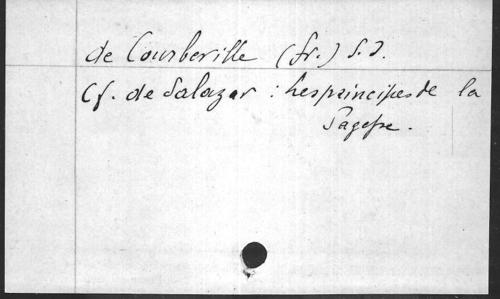 de Courberille (fr.) S.J.
Cf. de Salazar : les principes de la
Sagesse.